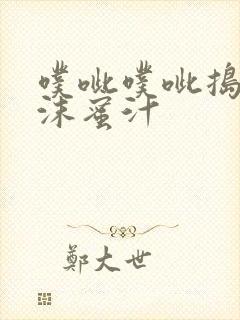 噗呲噗呲捣
沫蜜汁
鄭大世